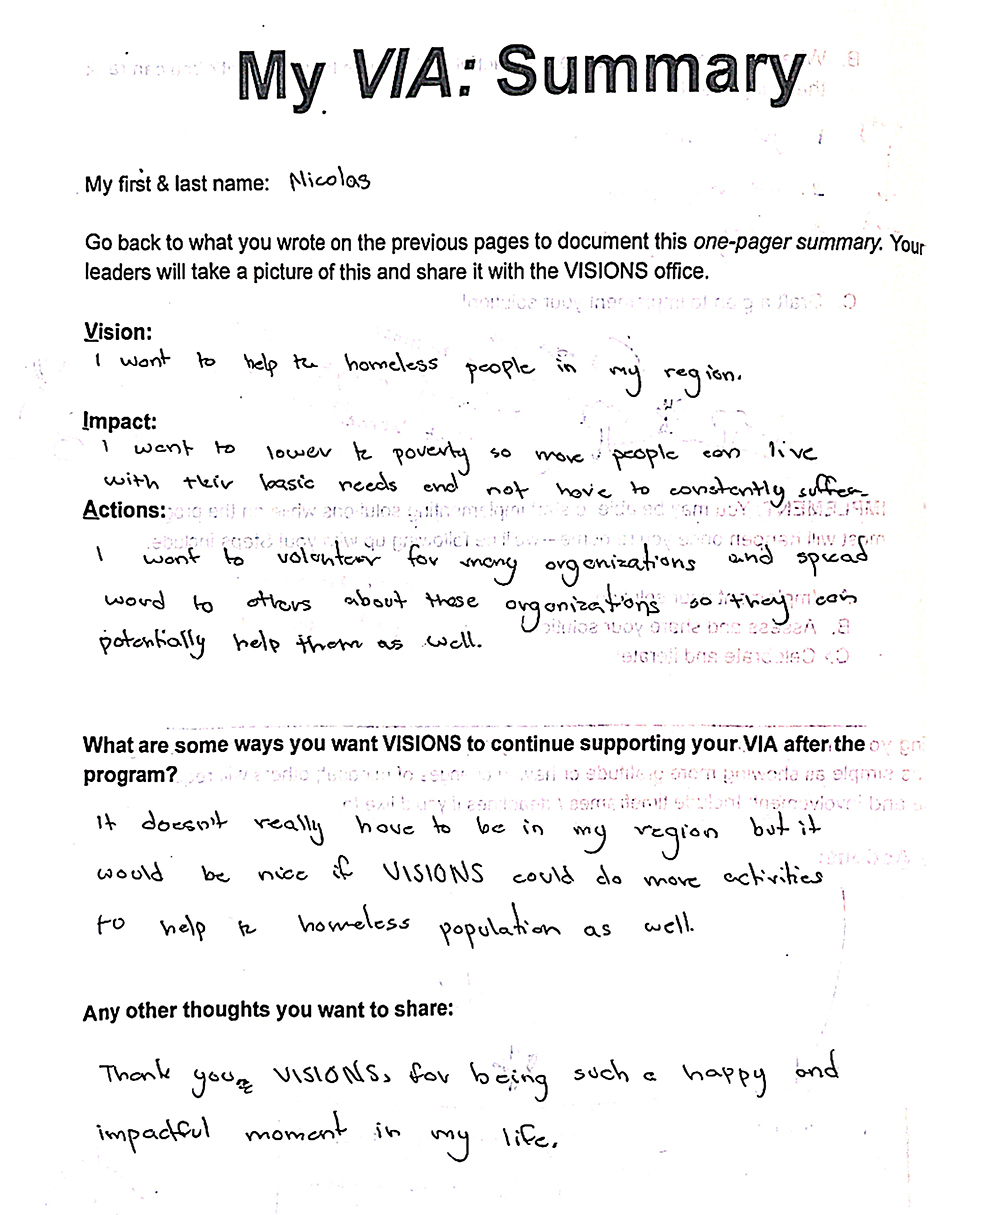 My VIA: Summary
My first & last name: Nicolas
Go back to what you wrote on the previous pages to document this one-pager summary. Your
leaders will take a picture of this and share it with the VISIONS office.
Vision:
I want to help the homeless people in my region.
Impact:
I want to lower the poverty so more people can live
with their basic needs and not have to constantly suffer.
Actions:
I want to volunteer for many organizations and spread
word to others about these organizations so they can
potentially help them as well.
What are some ways you want VISIONS to continue supporting your VIA after the
program?
It doesn't really have to be in my region but it
would be nice if VISIONS could do more activities
to help the homeless population as well.
Any other thoughts you want to share:
Thank you, VISIONS, for being such a happy and
impactful moment in my life.